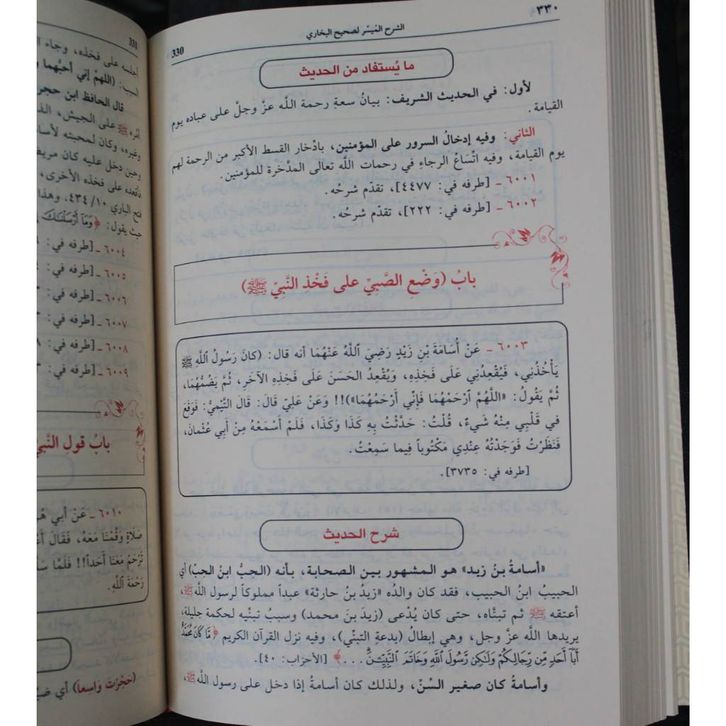 ٣٣٠
الشرح الميسّر لصحيح البخاري
330
ما يُستفاد من الحديث
لأول: في الحديث الشريف: بيان سعةِ رحمة اللَّه عزّ وجلّ على عباده يوم
القيامة.
الثاني: وفيه إدخالُ السرور على المؤمنين، بادّخار القسط الأكبر من الرحمة لهم
يوم القيامة، وفيه اتّساعُ الرجاء في رحمات اللَّه تعالى المدّخرة للمؤمنين.
٦٠٠١ - [طرفه في: ٤٤٧٧]، تقدّم شرحُه.
٦٠٠٢ - [طرفه في: ٢٢٢]، تقدّم شرحُه.
بابُ (وَضْعِ الصَّبيِّ على فَخْذِ النَّبيِّ ﷺ)
٦٠٠٣ - عَنْ أُسَامَةَ بْنِ زَيْدٍ رَضِيَ اللَّهُ عَنْهُمَا أنه قال: (كَانَ رَسُولُ اللَّهِ ﷺ
يَأْخُذُنِي، فَيُقْعِدُنِي عَلَى فَخِذِهِ، وَيُقْعِدُ الحَسَنَ عَلَى فَخِذِهِ الآخَرِ، ثُمَّ يَضُمُّهُمَا،
ثُمَّ يَقُولُ: «اللَّهُمَّ ارْحَمْهُمَا فَإِنِّي أَرْحَمُهُمَا»)!! وَعَنْ عَلِيٍّ قَالَ: قَالَ التَّيْمِيُّ: فَوَقَعَ
فِي قَلْبِي مِنْهُ شَيْءٌ، قُلْتُ: حَدَّثْتُ بِهِ كَذَا وَكَذَا، فَلَمْ أَسْمَعْهُ مِنْ أَبِي عُثْمَانَ،
فَنَظَرْتُ فَوَجَدْتُهُ عِنْدِي مَكْتُوباً فِيمَا سَمِعْتُ.
[طرفه في: ٣٧٣٥].
شرح الحديث
«أسامةُ بنُ زيد» هو المشهور بين الصحابة، بأنه (الحِبُّ ابنُ الحِبِّ) أي
الحبيبُ ابنُ الحبيب، فقد كان والدُه «زيدُ بنُ حارثة» عبداً مملوكاً لرسول اللَّه ﷺ،
أعتقه ﷺ ثم تبنَّاه، حتى كان يُدْعى (زيدَ بنَ محمد) وسببُ تبنّيه لحكمة جليلة،
يريدها اللَّه عز وجل، وهي إبطالُ (بدعةِ التبنّي)، وفيه نزل القرآن الكريم ﴿مَّا كَانَ مُحَمَّدٌ
أَبَا أَحَدٍ مِّن رِّجَالِكُمْ وَلَٰكِن رَّسُولَ اللَّهِ وَخَاتَمَ النَّبِيِّينَ ...﴾ [الأحزاب: ٤٠].
وأسامةُ كان صغير السنّ، ولذلك كان أسامةُ إذا دخل على رسول اللَّه ﷺ،
331
على فخذه، وجاء
(اللهمَّ إني أحبُّهما و
قال الحافظ ابن حجر
ﷺ على الجيش،
وغيره، وكان لمحبته لأسامة
وحين دخل عليه كان مريض
على فخذه الأخرى،
فتح الباري ٤٣٤/١٠، وهذا
حيث يقول: ﴿وَمَا أَرْسَلْنَاكَ
٦٠٠٤ - [طرفه في:
٦٠٠٥ - [طرفه في:
٦٠٠٦ - [طرفه في:
٦٠٠٧ - [طرفه في:
٦٠٠٨ - [طرفه في:
٦٠٠٩ - [طرفه في:
بابُ قول النَّبيِّ
٦٠١٠ - عَنْ أبي
صَلَاةٍ وَقُمْنَا مَعَهُ، فَقَالَ
تَرْحَمْ مَعَنَا أَحَداً!! فَلَمَّا
رَحْمَةَ اللَّهِ.
(حَجَّرْتَ وَاسعاً) أي